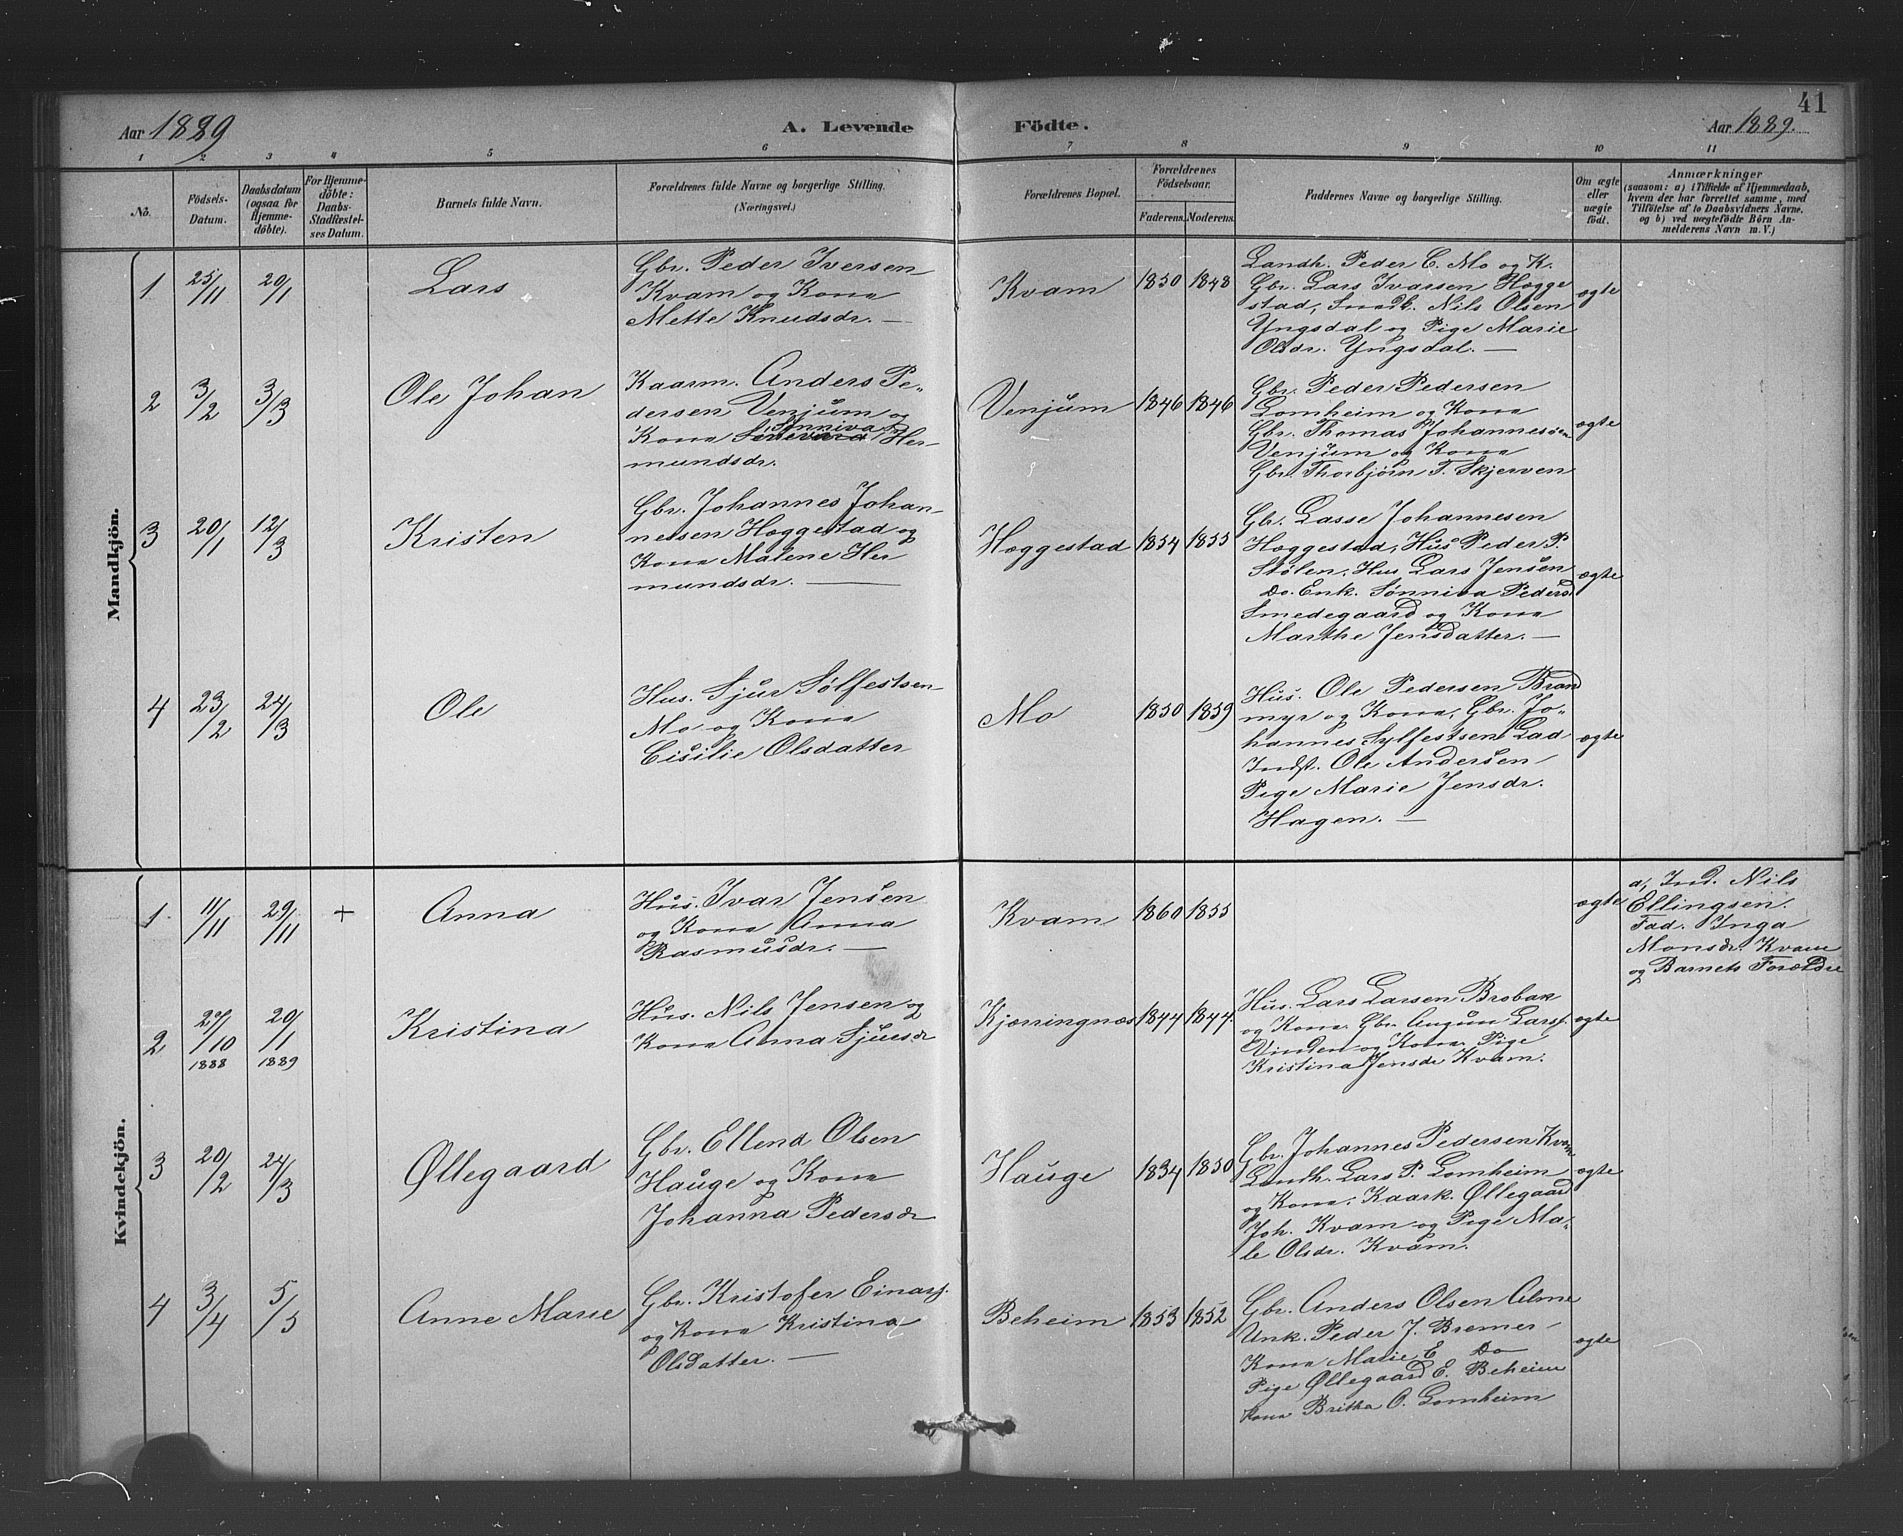 41
Aar 1889
A. Levende
Födte.
Aar 1889.
1 2 3 4 5 6 7 8 9 10 11
No.
Födsels-
Datum.
Daabsdatum
(ogsaa for
Hjemme-
döbte).
For Hjemme-
döbte:
Daabs-
Stadfæstel-
ses Datum.
Barnets fulde Navn.
Forældrenes fulde Navne og borgerlige Stilling.
(Næringsvei.)
Forældrenes Bopæl.
Forældrenes
Födselsaar.
Faderens. Moderens.
Faddernes Navne og borgerlige Stilling.
Om ægte
eller
uægte
födt.
Anmærkninger
(saasom: a) i Tilfælde af Hjemmedaab,
hvem der har forrettet samme, med
Tilföielse af to Daabsvidners Navne,
og b) ved uægtefödte Börn An-
melderens Navn m. V.)
Mandkjön.
1
25/11
20/1
Lars
Gbr. Peder Iversen
Kvam og Kona
Mette Knudsdr. —
Kvam
1850 1848
Landh. Peder C. Mo og K.
Gbr. Lars Ivarsen Hægge
stad, Smdb. Nils Olsen
Yngsdal og Pige Marie
Olsdr. Yngsdal. —
ægte
2
3/2
3/3
Ole Johan
Kaarm. Anders Pe-
dersen Venjum og
Sønniva
Kona Her-
mundsdr.
Venjum
1846 1846
Gbr. Peder Pedersen
Lomheim og Kona
Gbr. Thomas Johannessen
Venjum og Kona
Gbr. Thorbjørn T. Skjerven
ægte
3
20/1
12/3
Kristen
Gbr. Johannes Johan-
nesen Hæggestad og
Kona Malene Her
mundsdr. —
Hæggestad
1854 1855
Gbr. Lasse Johannesen
Hæggestad, Hus Peder P.
Stølen, Hus Lars Jensen
Do. Enk. Sønniva Pedersd
Smedegaard og Kona
Marthe Jensdatter. —
ægte
4
23/2
24/3
Ole
Hus. Sjur Sølfestsen
Mo og Kona
Cisilie Olsdatter
Mo
1850 1859
Hus. Ole Pedersen Brand
myr og Kona, Gbr. Jo-
hannes Sylfestsen Lad
Indst. Ole Andersen
Pige Marie Jensdr.
Hagen. —
ægte
Kvindekjön.
1
11/11
29/11
+
Anna
Hus. Ivar Jensen
og Kona Anna
Rasmusdr. —
Kvam
1860 1855
ægte
a, Ind. Nils
Ellingsen.
Fad. Inga
Monsdr. Kvam
og Barnets Forældre
2
27/10
1888
20/1
1889
Kristina
Hus. Nils Jensen og
Kona Anna Sjursdr
Kjørringnæs
1844 1844.
Hus. Lars Larsen Brobak
og Kona Gbr. Augun Larss.
Vinden og Kona. Pige
Kristina Jensdr Kvam.
ægte
3
20/2
24/3
Øllegaard
Gbr. Ellend Olsen
Hauge og Kona
Johanna Pedersdr
Hauge
1834 1850
Gbr. Johannes Pedersen Kvam
Landh. Lars P. Lomheim
og Kona, Kaark. Øllegaard
Joh. Kvam og Pige Ma-
le Olsdr. Kvam.
ægte
4
3/4
5/5
Anne Marie
Gbr. Kristofer Einarss.
og Kona Kristina
Olsdatter. —
Beheim
1853 1852
Gbr. Anders Olsen Alme
Unk. Peder J. Bremer
Kona Marie E. Do
Pige Øllegaard E. Beheim
Kona Britha O. Lomheim
ægte